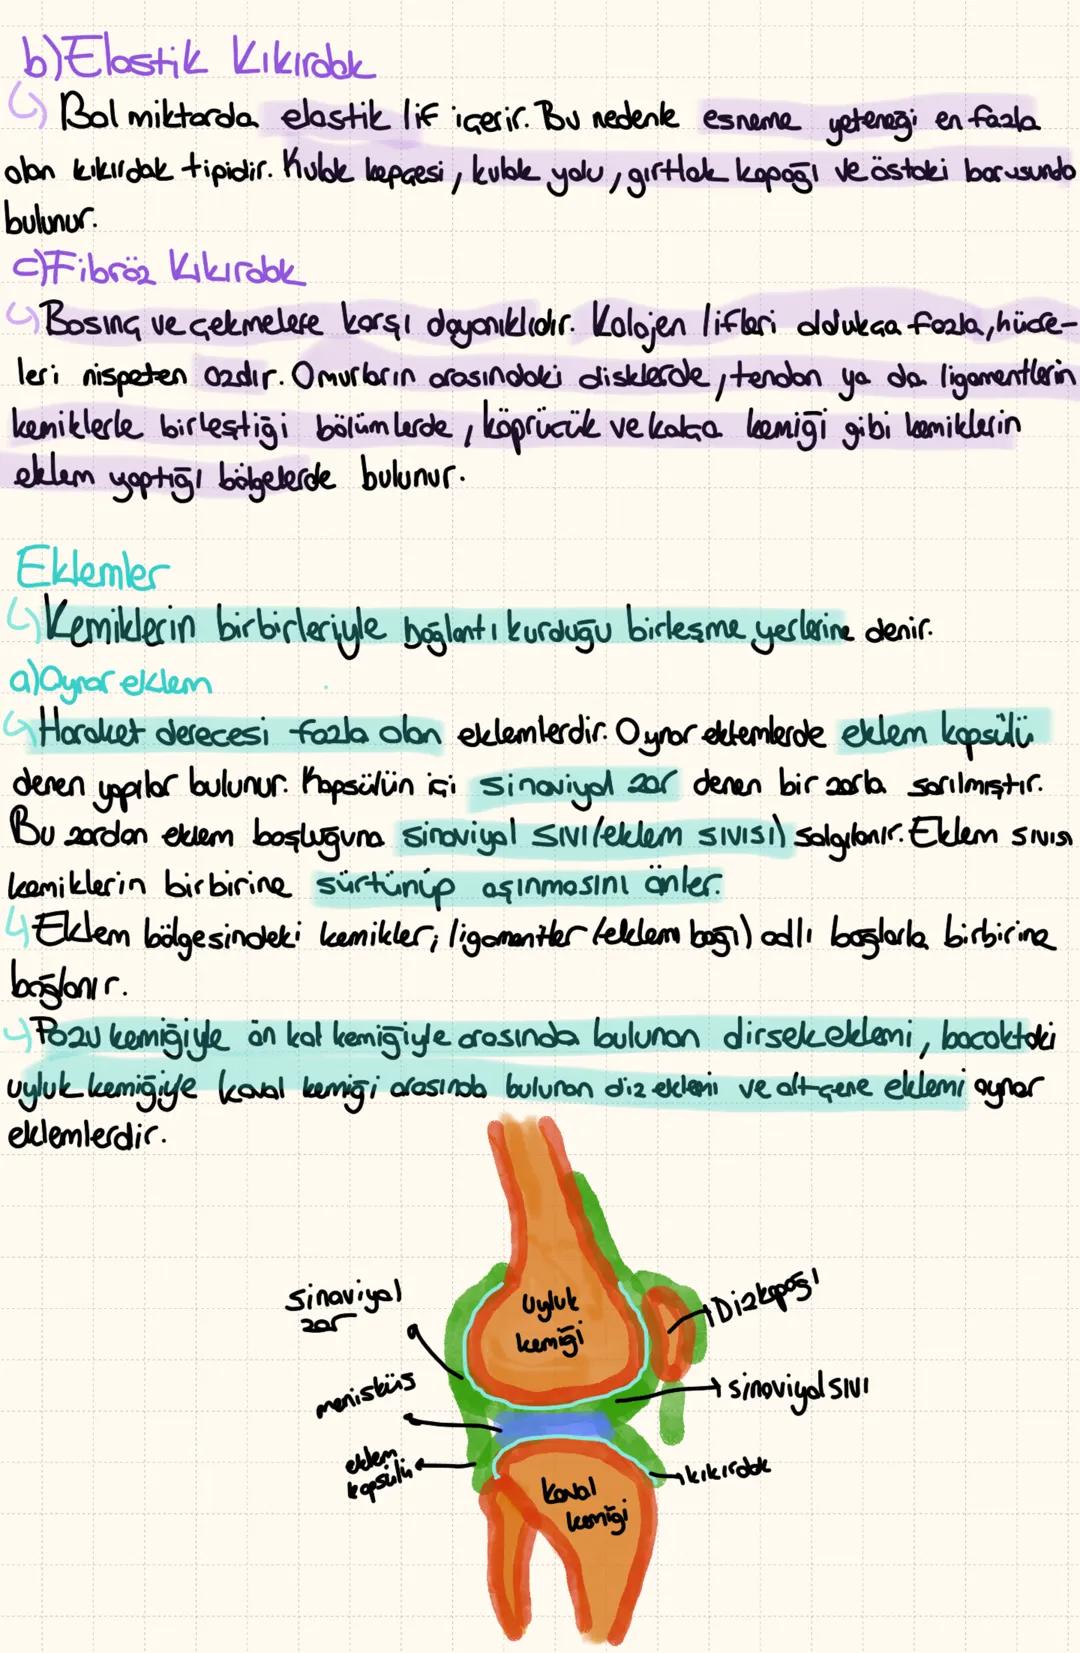 b) Elastik Kıkırdak
Bol miktarda elastik lif içerir. Bu nedenle esneme yeteneği en fazla
olan kıkırdak tipidir. Kulak kepçesi, kulak yolu, gırtlak kapağı ve östaki borusunda
bulunur.
c) Fibröz Kıkırdak
Basınç ve çekmelere karşı dayanıklıdır. Kolojen lifleri oldukça fazla, hücre-
leri nispeten azdır. Omurların arasındaki disklerde, tendon ya da ligamentlerin
kemiklerle birleştiği bölümlerde, köprücük ve kalça kemiği gibi kemiklerin
eklem yaptığı bölgelerde bulunur.
Eklemler
Kemiklerin birbirleriyle bağlantı kurduğu birleşme yerlerine denir.
a) Oynar eklem
Haraket derecesi fazla olan eklemlerdir. Oynar eklemlerde eklem kapsülü
denen yapılar bulunur. Kapsülün içi sinoviyal zar denen bir zarla sarılmıştır.
Bu zardan eklem boşluğuna sinoviyal sıvı (eklem sıvısı) salgılanır. Eklem sıvısı
kemiklerin birbirine sürtünüp aşınmasını önler.
Eklem bölgesindeki kemikler; ligamentler (eklem bağı) adlı bağlarla birbirine
bağlanır.
Pazu kemiğiyle ön kol kemiğiyle arasında bulunan dirsek eklemi, bacaktaki
uyluk kemiğiye kaval kemiği arasında bulunan diz eklemi ve alt çene eklemi oynar
eklemlerdir.
sinoviyal
zar
Uyluk
kemiği
Diz kapağı
menisküs
sinoviyal sıvı
eklem
kapsülü
kıkırdak
Kaval
kemiği